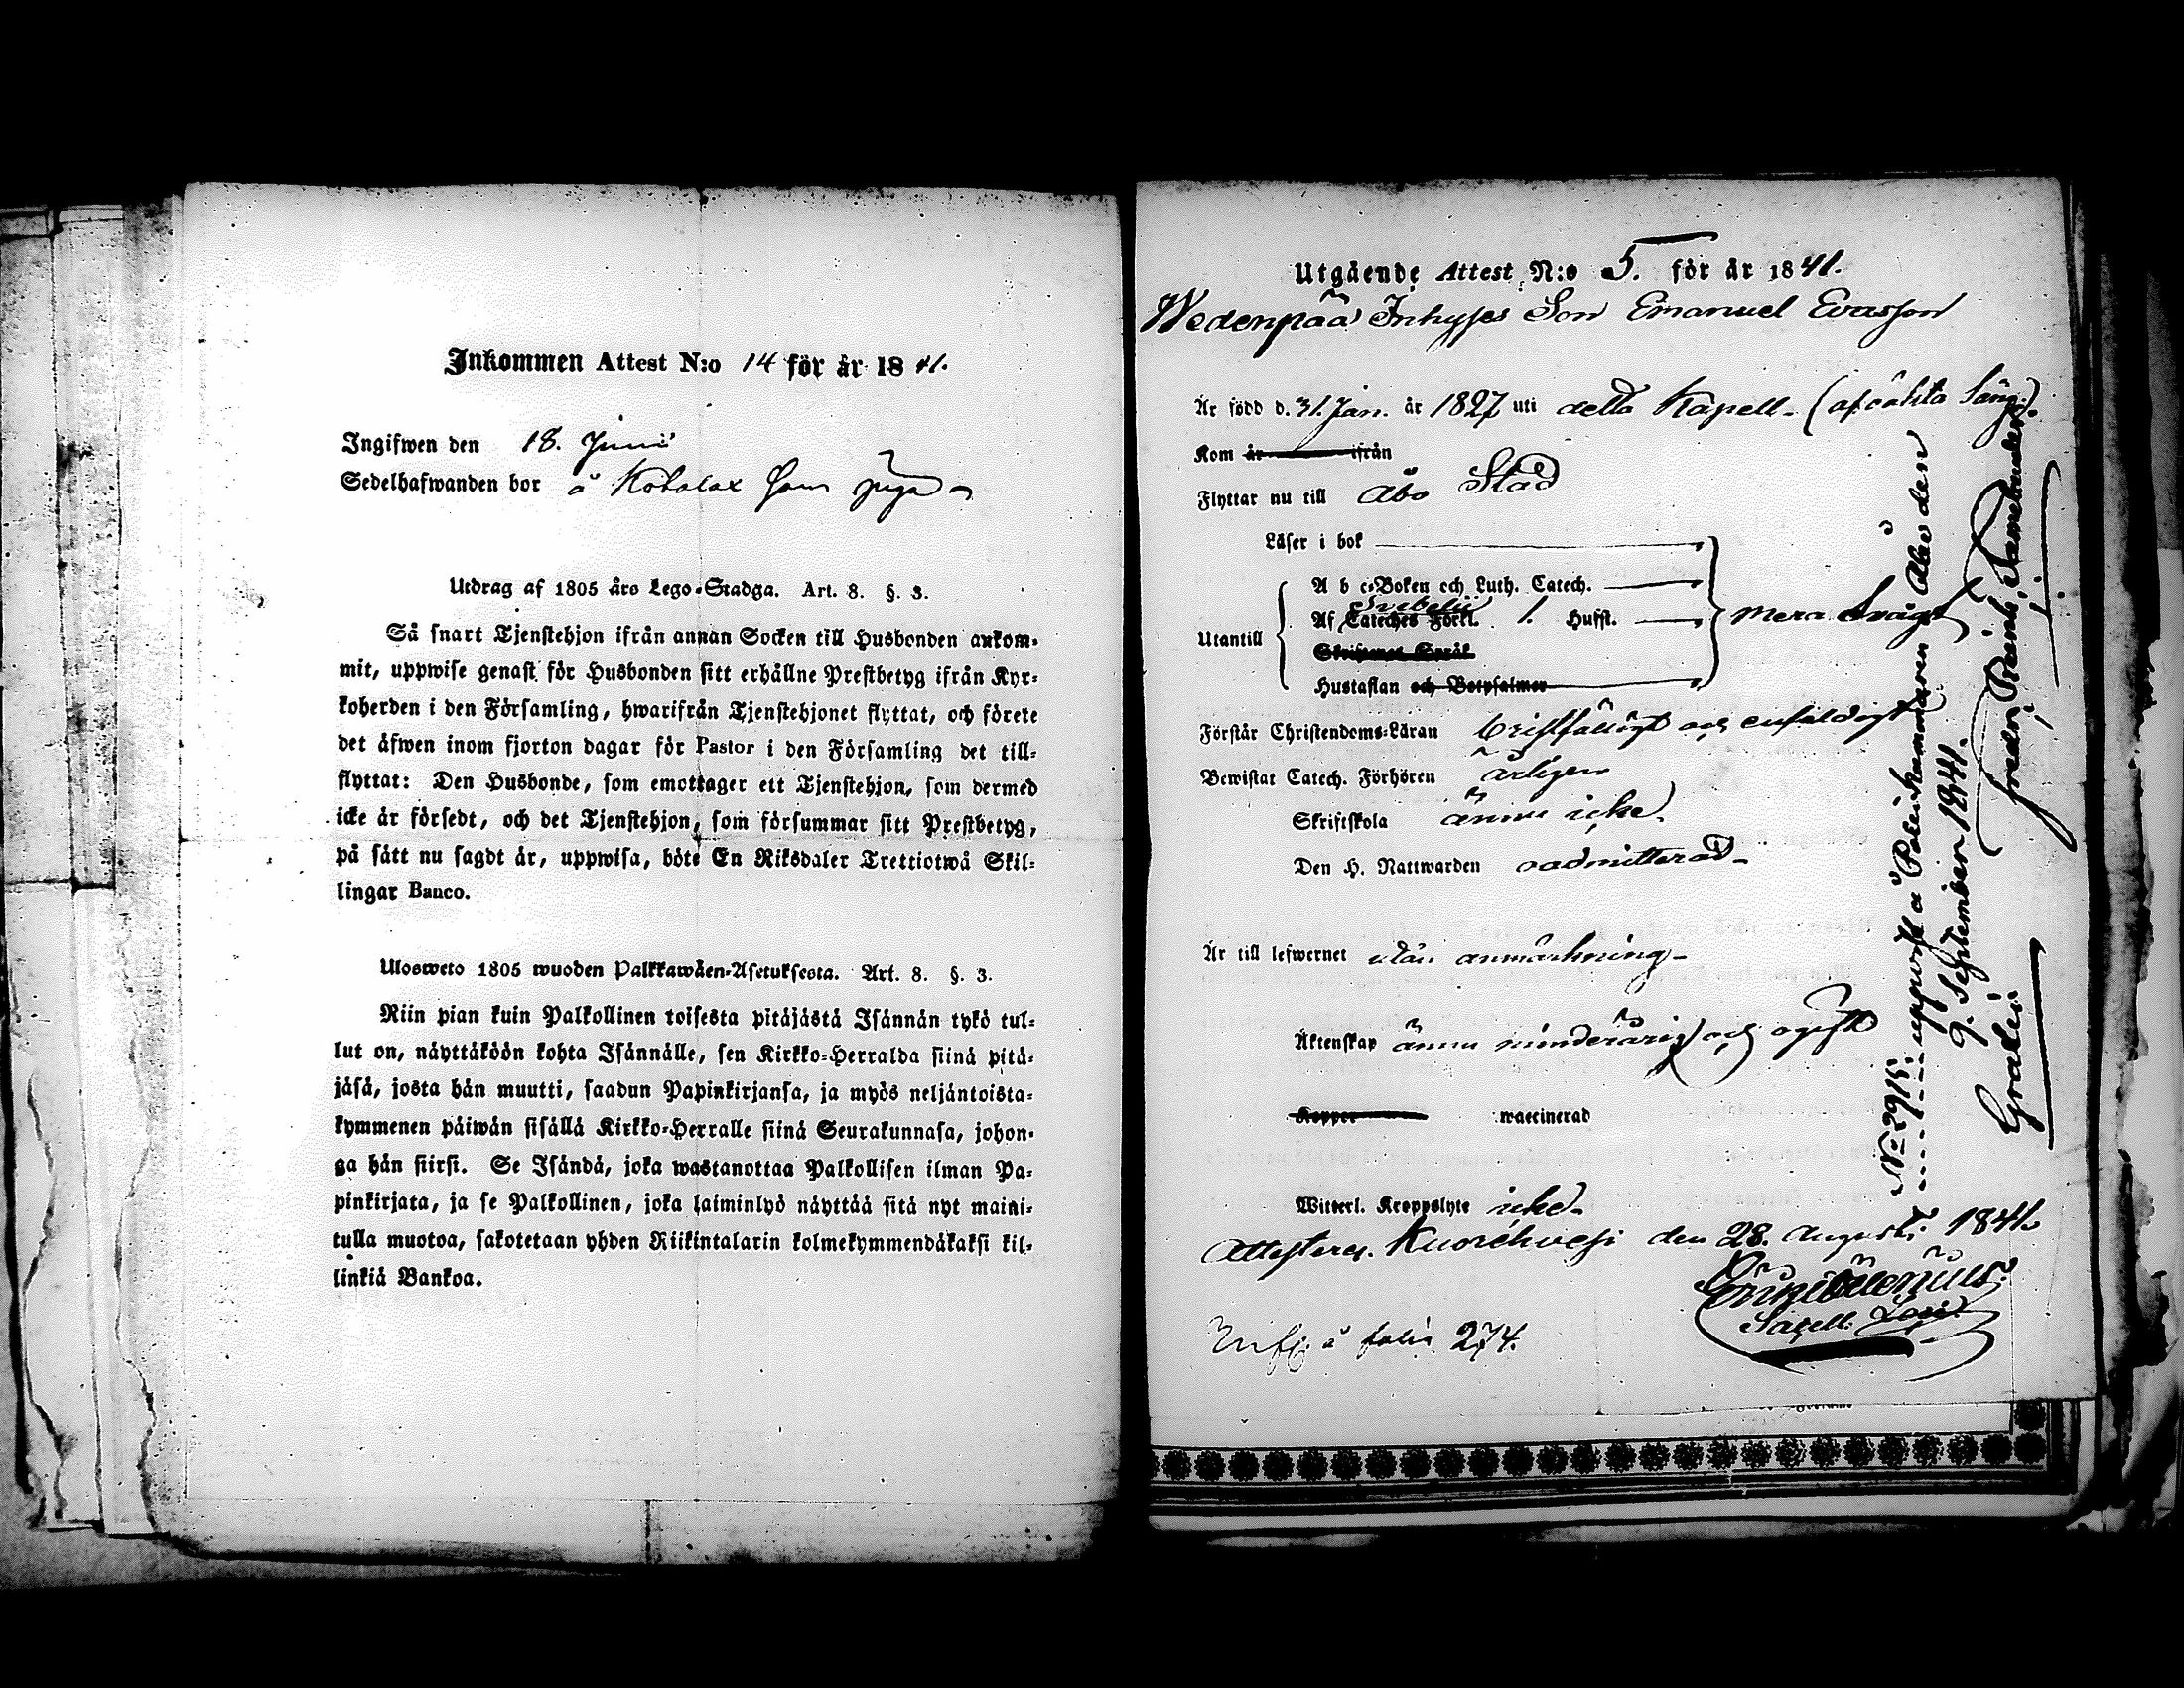 Inkommen Attest N:o 14 för år 1841.
Ingifwen den 18. Junii
Sedelhafwanden bor å Kobalax som piga
Utdrag af 1805 års Lego-Stadga. Art. 8. §. 3.
Så snart Tjenstehjon ifrån annan Socken till Husbonden ankom-
mit, uppwise genast för Husbonden sitt erhållne Prestbetyg ifrån Kyr-
koherden i den Församling, hwarifrån Tjenstehjonet flyttat, och förete
det äfwen inom fjorton dagar för Pastor i den Församling det till-
flyttat: Den Husbonde, som emottager ett Tjenstehjon, som dermed
icke är försedt, och det Tjenstehjon, som försummar sitt Prestbetyg,
på sätt nu sagdt är, uppwisa, böte En Riksdaler Trettiotwå Skil-
lingar Banco.
Ulosweto 1805 wuoden Palkkawäen-Asetuksesta. Art. 8. §. 3.
Niin pian kuin Palkollinen toisesta pitäjästä Isännän tykö tul-
lut on, näyttäköön kohta Isännälle, sen Kirkko-Herralda siinä pitä-
jäsä, josta hän muutti, saadun Papinkirjansa, ja myös neljäntoista-
kymmenen päiwän sisällä Kirkko-Herralle siinä Seurakunnasa, johon-
ga hän siirsi. Se Isändä, joka wastanottaa Palkollisen ilman Pa-
pinkirjata, ja se Palkollinen, joka laiminlyö näyttää sitä nyt maini-
tulla muotoa, sakotetaan yhden Riikintalarin kolmekymmendäkaksi kil-
linkiä Bankoa.
Utgående Attest N:o 5. för år 1841.
Wedenpää Inhyses Son Emanuel Evasson
Är född d. 31. Jan. år 1827 uti detta Kapell. (af oäkta Säng.).
Kom år ifrån
Flyttar nu till Åbo Stad
Läser i bok
A b c-Boken och Luth. Catech.
Svebelii
Utantill Af Cateches Förkl. 1. Hufst. mera Svagt
Skriftenes Språk
Hustaflan och Botpsalmer
Förstår Christendoms-Läran bristfälligt och enfaldigt
Bewistat Catech. Förhören årligen
Skriftskola ännu icke.
Den H. Nattwarden oadmitterad
Är till lefwernet utan anmärkning
Äktenskap ännu minderårig och ogift
Koppor waccinerad
Witterl. Kroppslyte icke
Attesterar. Kuorehvesi den 28. Augusti 1841.
Sacell.
Insk. å folio 274.
No 2915. uppvist å Poliskammaren i Åbo den
9. September 1841.
Gratis.